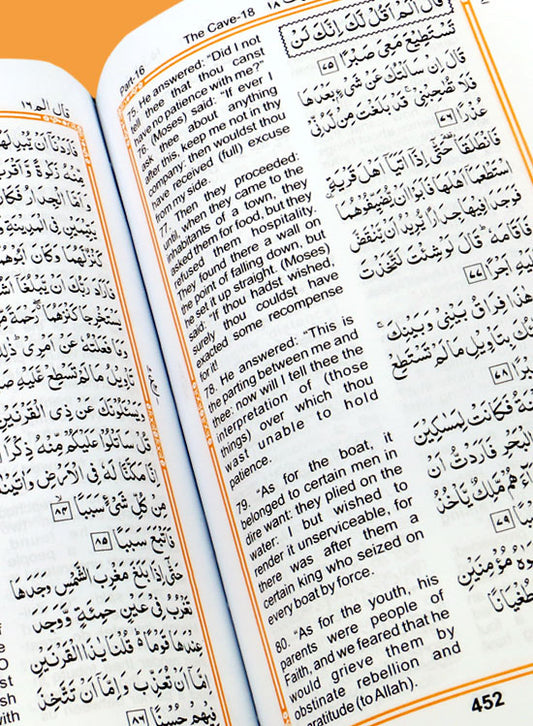 قال الم ١٦
فَاَرَدْنَاۤ اَنْ يُّبْدِلَهُمَا
مِّنْهُ زَكٰوةً وَّاَقْرَبَ
وَاَمَّا الْجِدَارُ فَكَانَ
يَتِيْمَيْنِ فِى الْمَدِيْنَةِ
كَنْزٌ لَّهُمَا وَكَانَ اَبُوْهُمَا
فَاَرَادَ رَبُّكَ اَنْ يَّبْلُغَاۤ
وَيَسْتَخْرِجَا كَنْزَهُمَا رَحْمَةً
وَمَا فَعَلْتُهٗ عَنْ اَمْرِيْ ذٰلِكَ
تَاْوِيْلُ مَا لَمْ تَسْطِعْ عَّلَيْهِ
وَيَسْـَٔلُوْنَكَ عَنْ ذِى الْقَرْنَيْنِ
قُلْ سَاَتْلُوْا عَلَيْكُمْ مِّنْهُ ذِكْرًا
اِنَّا مَكَّنَّا لَهٗ فِى الْاَرْضِ وَاٰتَيْنٰهُ
مِنْ كُلِّ شَيْءٍ سَبَبًا ٨٤
فَاَتْبَعَ سَبَبًا ٨٥
حَتّٰۤى اِذَا بَلَغَ مَغْرِبَ الشَّمْسِ وَجَدَهَا
تَغْرُبُ فِيْ عَيْنٍ حَمِئَةٍ وَّوَجَدَ
عِنْدَهَا قَوْمًا قُلْنَا يٰذَا الْقَرْنَيْنِ
اِمَّاۤ اَنْ تُعَذِّبَ وَاِمَّاۤ اَنْ تَتَّخِذَ
فِيْهِمْ حُسْنًا ٨٦
Part-16
The Cave-18
١٨
75. He answered: "Did I not
tell thee that thou canst
have no patience with me?"
76. (Moses) said: "If ever I
ask thee about anything
after this, keep me not in thy
company: then wouldst thou
have received (full) excuse
from my side.
77. Then they proceeded:
until, when they came to the
inhabitants of a town, they
asked them for food, but they
refused them hospitality.
They found there a wall on
the point of falling down, but
he set it up straight. (Moses)
said: "If thou hadst wished,
surely thou couldst have
exacted some recompense
for it!
78. He answered: "This is
the parting between me and
thee: now will I tell thee the
interpretation of (those
things) over which thou
wast unable to hold
patience.
79. "As for the boat, it
belonged to certain men in
dire want: they plied on the
water: I but wished to
render it unserviceable, for
there was after them a
certain king who seized on
every boat by force.
80. "As for the youth, his
parents were people of
Faith, and we feared that he
would grieve them by
obstinate rebellion and
gratitude (to Allah).
قَالَ اَلَمْ اَقُلْ لَّكَ اِنَّكَ لَنْ
تَسْتَطِيْعَ مَعِيَ صَبْرًا ٧٥
قَالَ اِنْ سَاَلْتُكَ عَنْ شَيْءٍ بَعْدَهَا
فَلَا تُصٰحِبْنِيْ قَدْ بَلَغْتَ مِنْ لَّدُنِّيْ
عُذْرًا ٧٦
فَانْطَلَقَا حَتّٰۤى اِذَاۤ اَتَيَاۤ اَهْلَ قَرْيَةِ
اسْتَطْعَمَاۤ اَهْلَهَا فَاَبَوْا اَنْ يُّضَيِّفُوْهُمَا
فَوَجَدَا فِيْهَا جِدَارًا يُّرِيْدُ اَنْ يَّنْقَضَّ
فَاَقَامَهٗ قَالَ لَوْ شِئْتَ لَتَّخَذْتَ
اَجْرًا ٧٧
هٰذَا فِرَاقُ بَيْنِيْ وَبَيْنِكَ
بِتَاْوِيْلِ مَا لَمْ تَسْتَطِعْ
٧٨
فَكَانَتْ لِمَسٰكِيْنَ
الْبَحْرِ فَاَرَدْتُّ اَنْ
مَّلِكٌ يَّاْخُذُ
٧٩
مُؤْمِنَيْنِ
طُغْيَانًا
452